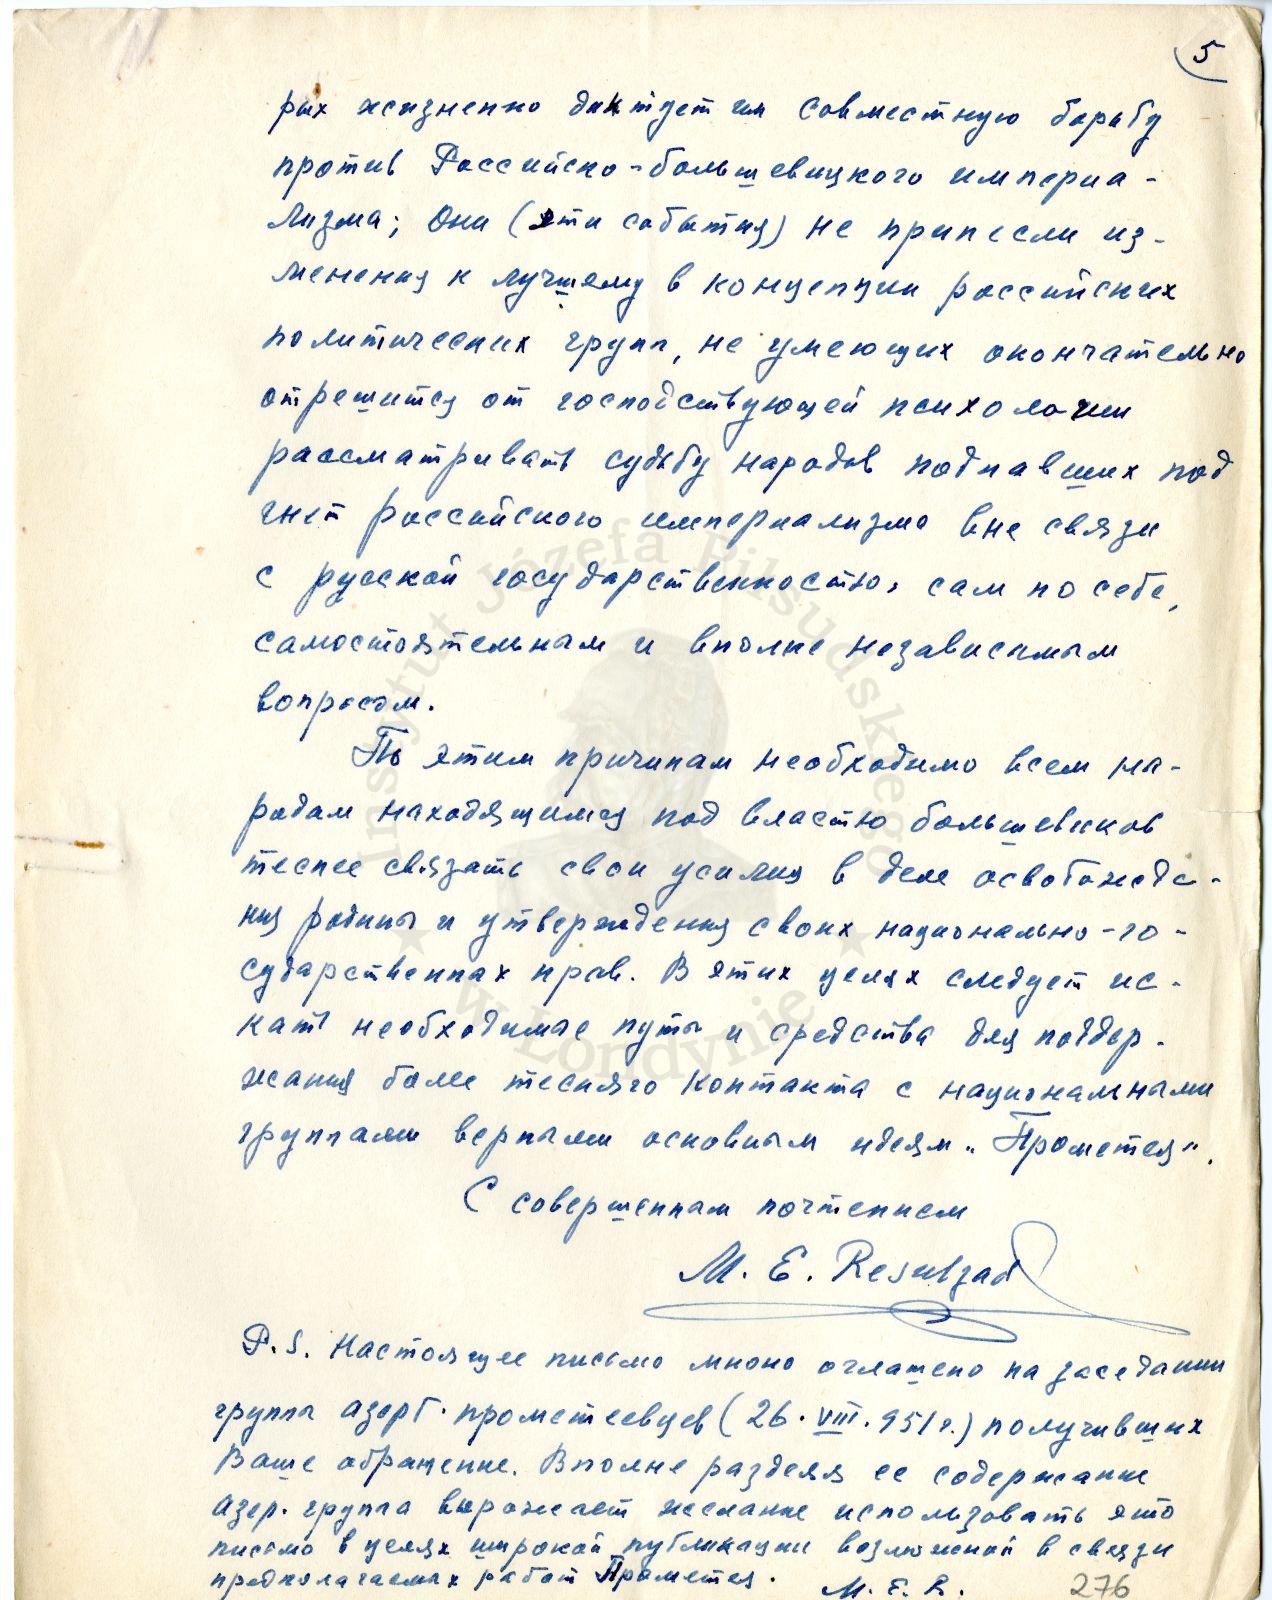 5
рых жизненно диктует им совместную борьбу
против Российско-большевицкого империа-
лизма; Они (эти события) не принесли из-
менения к лучшему в концепции российских
политических групп, не умеющих окончательно
отрешится от господствующей психологии
рассматривать судьбу народов подпавших под
гнет российского империализмо вне связи
с русской государственностью, сам по себе,
самостоятельным и вполне независимым
вопросом.
По этим причинам необходимо всем на-
родам находящимся под властю большевиков
теснее связать свои усилия в деле освобожде-
ния родины и утверждения своих национально-го-
сударственных прав. В этих целях следует ис-
кать необходимые путы и средства для поддер-
жания более тесняго контакта с национальными
группами верными основным идеям „Прометея".
С совершенным почтением
M. E. Resulzad
P.S. Настоящее письмо мною оглашено на заседании
группы азерб. прометеевцев (26. VIII. 951 г.) получивших
Ваше обращение. Вполне разделяя ее содержание
азер. группа выражает желание использовать это
письмо в целях широкой публикации возможной в связи
предполагаемых работ Прометея.
M. E. R.
276
Instytut Józefa Piłsudskiego
w Londynie